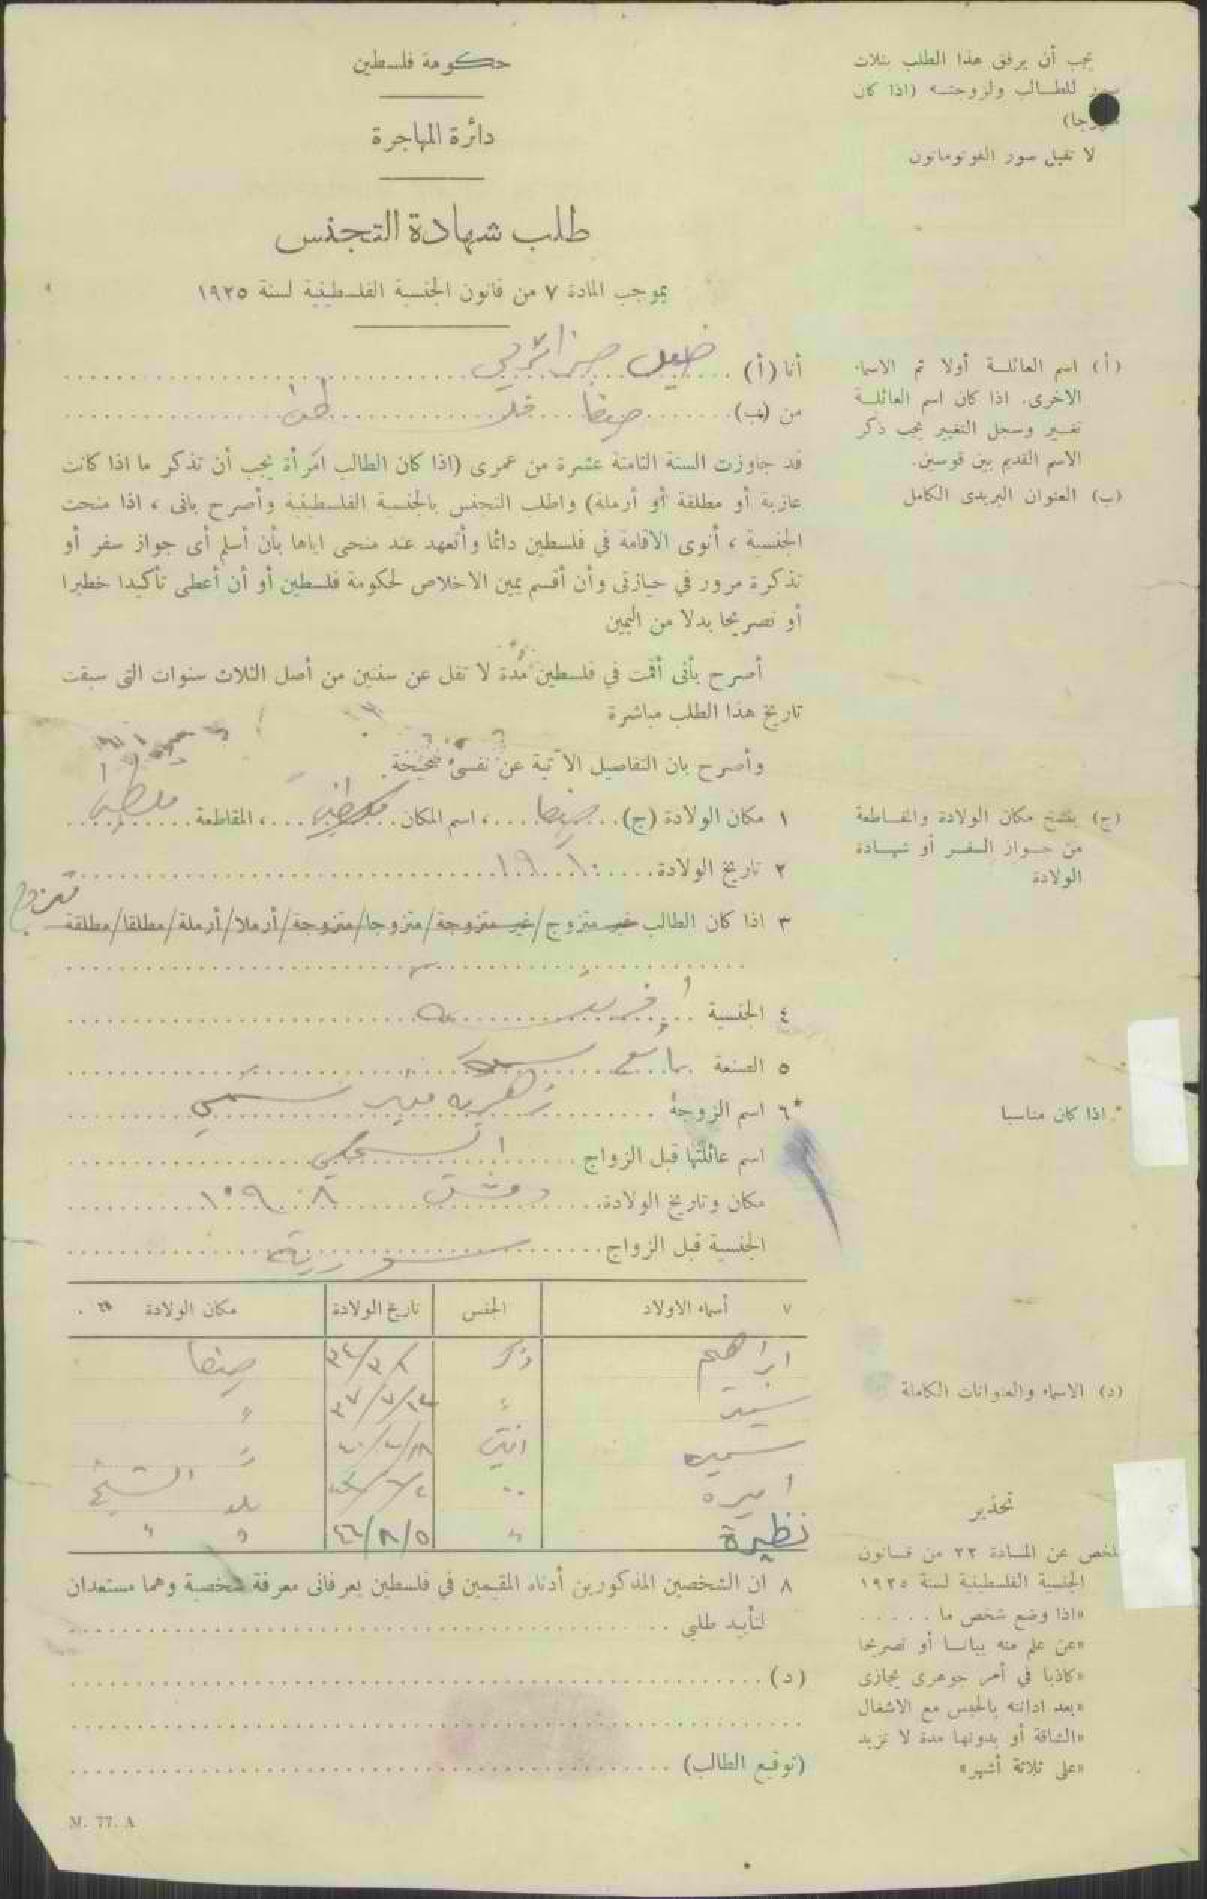 حكومة فلسطين
دائرة المهاجرة
طلب شهادة التجنس
بموجب المادة ٧ من قانون الجنسية الفلسطينية لسنة ١٩٢٥
يجب أن يرفق هذا الطلب بثلاث
صور للطالب ولزوجته (اذا كان
متزوجا)
لا تقبل صور الفوتوماتون
أنا (أ) جزائرلي
من (ب) صفد
قد جاوزت السنة الثامنة عشرة من عمرى (اذا كان الطالب امرأة يجب أن تذكر ما اذا كانت
عازبة أو مطلقة أو أرملة) واطلب التجنس بالجنسية الفلسطينية وأصرح بانى ، اذا منحت
الجنسية ، أنوى الاقامة في فلسطين دائما وأتعهد عند منحى اياها بأن أسلم أى جواز سفر أو
تذكرة مرور في حيازتى وأن أقسم يمين الاخلاص لحكومة فلسطين أو أن أعطى تأكيدا خطيرا
أو تصريحا بدلا من اليمين
أصرح بأنى أقمت في فلسطين مدة لا تقل عن سنتين من أصل الثلاث سنوات التى سبقت
تاريخ هذا الطلب مباشرة
وأصرح بان التفاصيل الآتية عن نفسى صحيحة.
١ مكان الولادة (ج) ، اسم المكان ، المقاطعة
٢ تاريخ الولادة ١٩١٠
٣ اذا كان الطالب غير متزوج/غير متزوجة/متزوجا/متزوجة/أرملا/أرملة/مطلقا/مطلقة متزوج
٤ الجنسية
٥ الصنعة بائع
*٦ اسم الزوجة زهرية
اسم عائلتها قبل الزواج
مكان وتاريخ الولادة دمشق ١٩٠٨
الجنسية قبل الزواج سورية
٧ أسماء الاولاد الجنس تاريخ الولادة مكان الولادة
ابراهيم ذكر
سميره انثى
اميره
نظيرة ٤٦/٨/٥
٨ ان الشخصين المذكورين أدناه المقيمين في فلسطين يعرفانى معرفة شخصية وهما مستعدان
لتأييد طلبى
(د)
(توقيع الطالب)
M. 77. A
(أ) اسم العائلة أولا ثم الاسماء
الاخرى. اذا كان اسم العائلة
تغير وسجل التغيير يجب ذكر
الاسم القديم بين قوسين.
(ب) العنوان البريدى الكامل
(ج) مكان الولادة والمقاطعة
من جواز السفر أو شهادة
الولادة
* اذا كان مناسبا
(د) الاسماء والعنوانات الكاملة
تحذير
ملخص عن المادة ٢٢ من قانون
الجنسية الفلسطينية لسنة ١٩٢٥
«اذا وضع شخص ما . . . . .
«عن علم منه بيانا أو تصريحا
«كاذبا في أمر جوهرى يجازى
«بعد ادانته بالحبس مع الاشغال
«الشاقة أو بدونها مدة لا تزيد
«على ثلاثة أشهر»